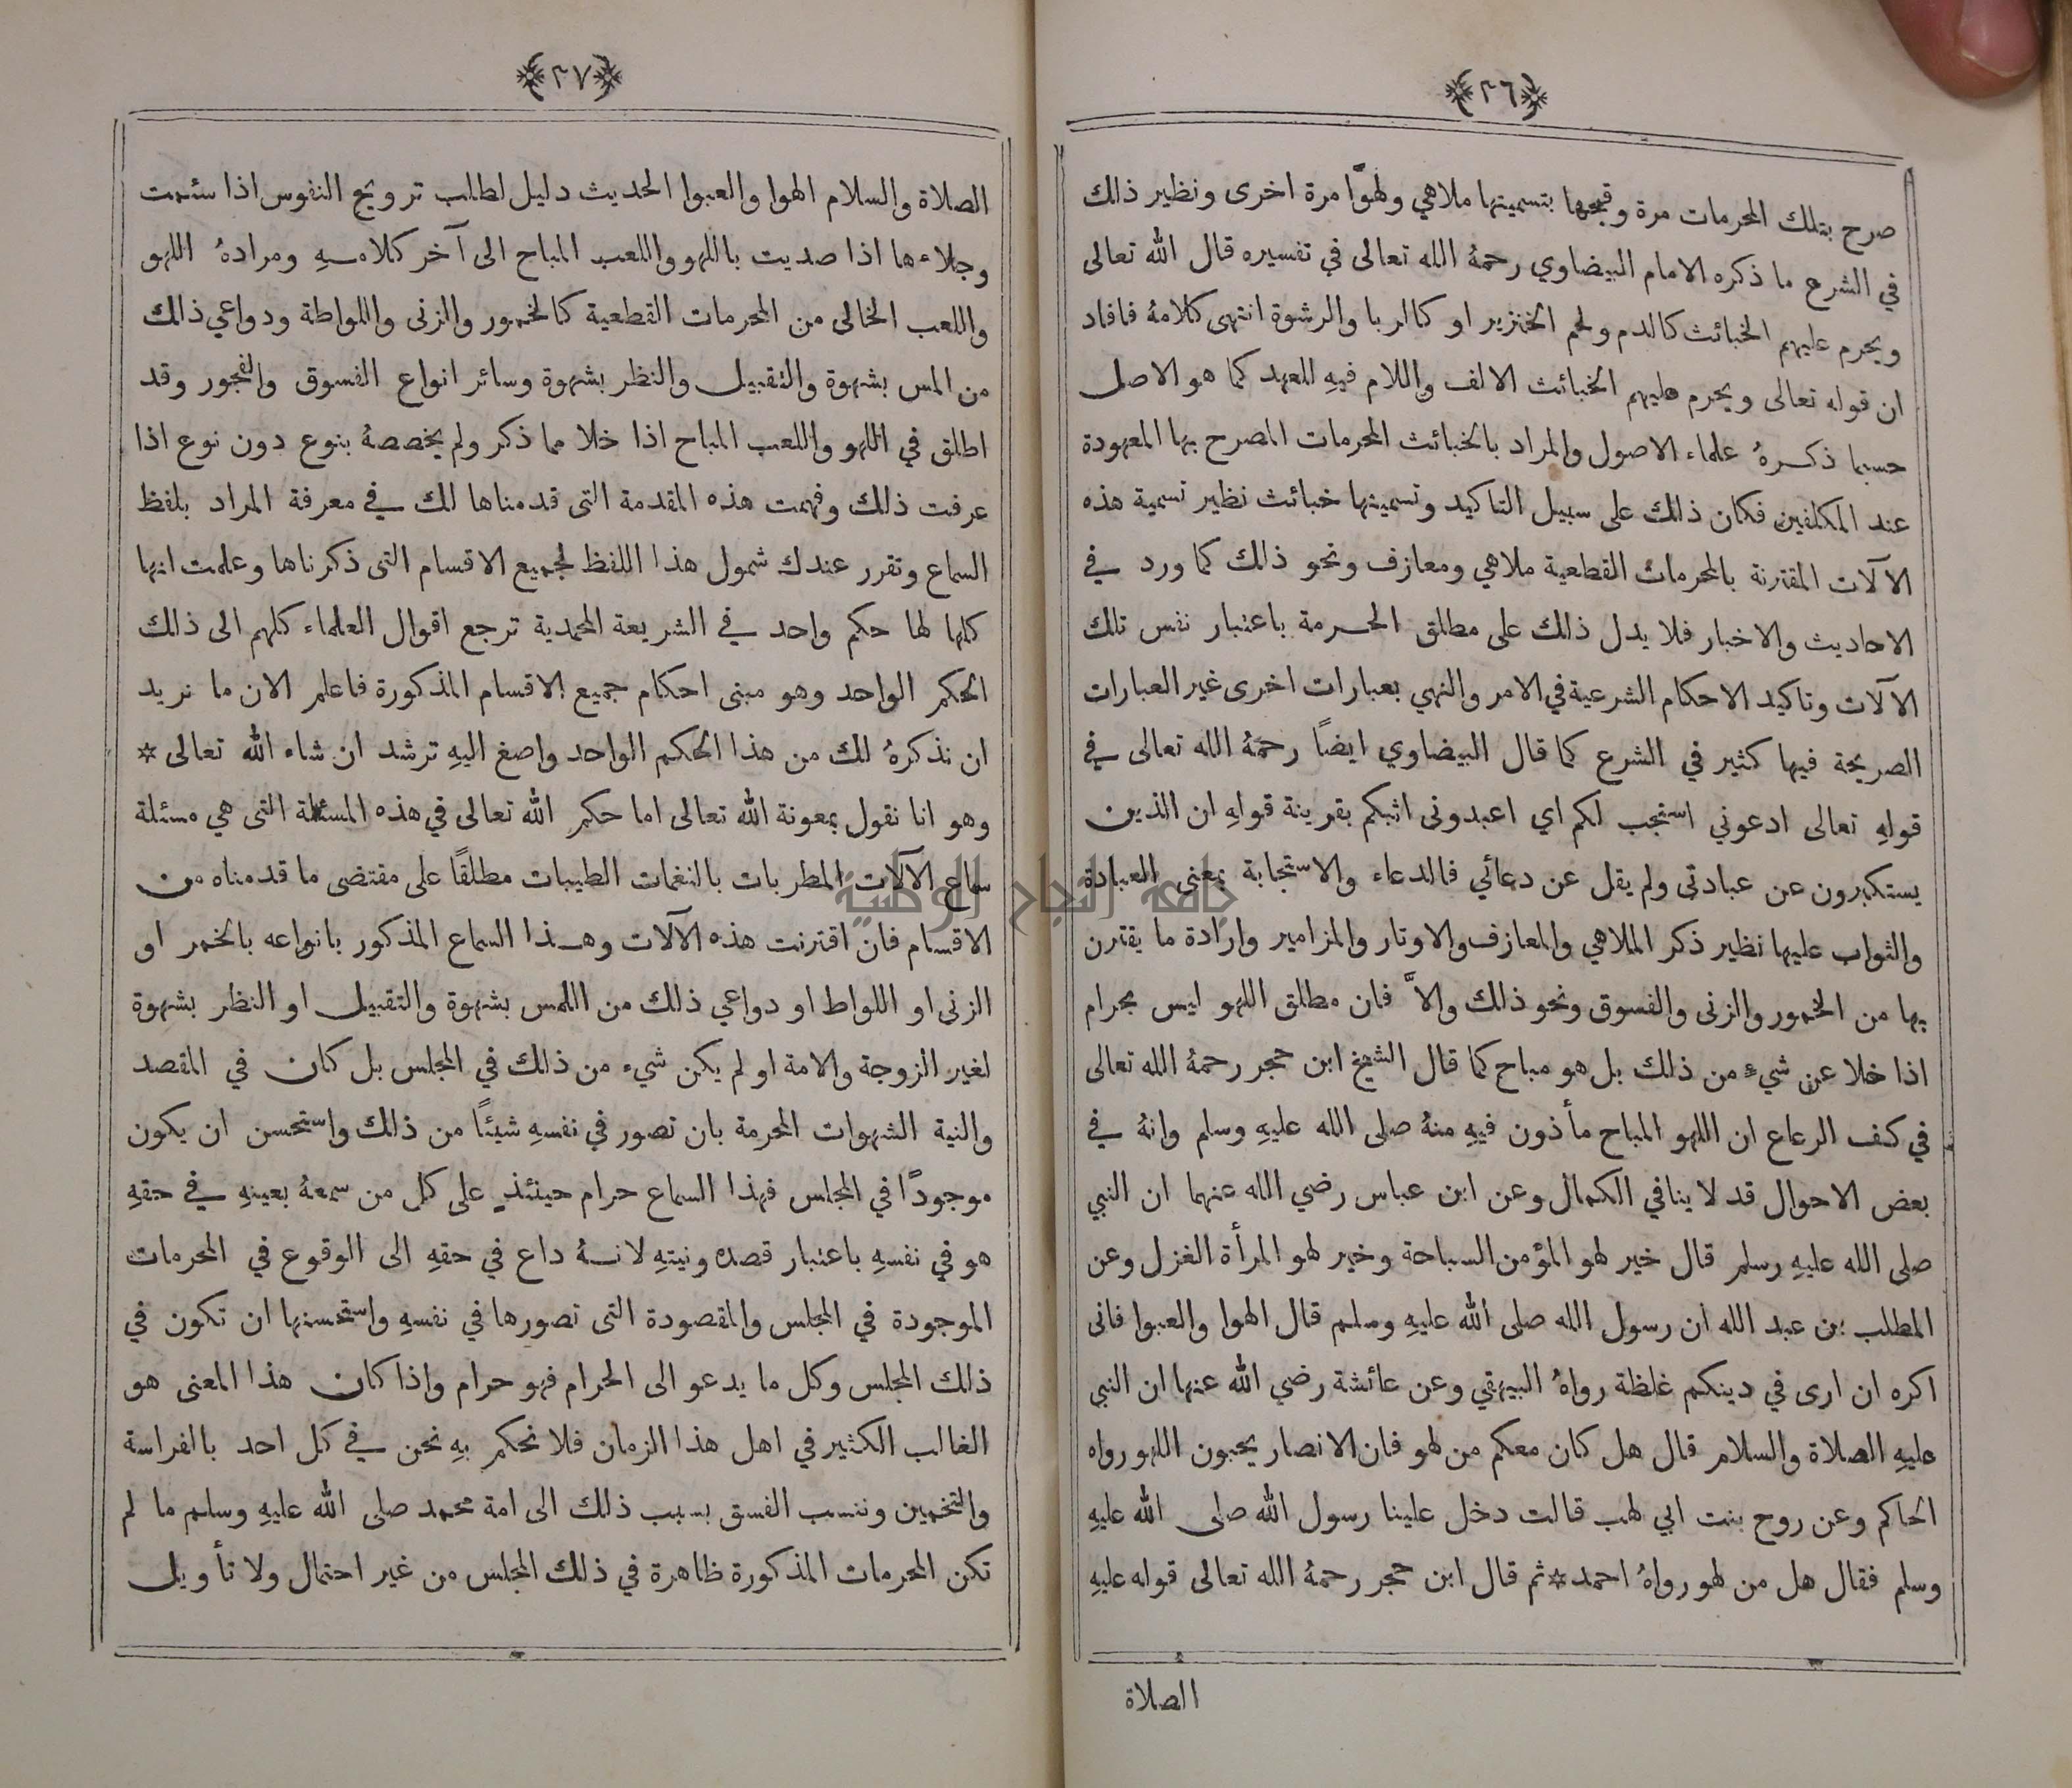 ﴿٢٦﴾
صرح بتلك المحرمات مرة وقبحها بتسميتها ملاهي ولهوًّا مرة اخرى ونظير ذلك
في الشرع ما ذكره الامام البيضاوي رحمهُ الله تعالى في تفسيره قال الله تعالى
ويحرم عليهم الخبائث كالدم ولحم الخنزير او كالربا والرشوة انتهى كلامهُ فافاد
ان قوله تعالى ويحرم عليهم الخبائث الالف واللام فيهِ للعهد كما هو الاصل
حسبما ذكرهُ علماء الاصول والمراد بالخبائث المحرمات المصرح بها المعهودة
عند المكلفين فكان ذلك على سبيل التاكيد وتسميتها خبائث نظير تسمية هذه
الآلات المقترنة بالمحرمات القطعية ملاهي ومعازف ونحو ذلك كما ورد في
الاحاديث والاخبار فلا يدل ذلك على مطلق الحرمة باعتبار نفس تلك
الآلات وتاكيد الاحكام الشرعية في الامر والنهي بعبارات اخرى غير العبارات
الصريحة فيها كثير في الشرع كما قال البيضاوي ايضًا رحمهُ الله تعالى في
قولهِ تعالى ادعوني استجب لكم اي اعبدونى اثبكم بقرينة قولهِ ان الذين
يستكبرون عن عبادتى ولم يقل عن دعائي فالدعاء والاستجابة بمعنى العبادة
والثواب عليها نظير ذكر الملاهي والمعازف والاوتار والمزامير وارادة ما يقترن
بها من الخمور والزنى والفسوق ونحو ذلك والاَّ فان مطلق اللهو ليس بحرام
اذا خلا عن شيء من ذلك بل هو مباح كما قال الشيخ ابن حجر رحمهُ الله تعالى
في كف الرعاع ان اللهو المباح مأذون فيهِ منهُ صلى الله عليهِ وسلم وانهُ في
بعض الاحوال قد لا ينافي الكمال وعن ابن عباس رضي الله عنهما ان النبي
صلى الله عليهِ رسلم قال خير لهو المؤمن السباحة وخير لهو المرأة الغزل وعن
المطلب بن عبد الله ان رسول الله صلى الله عليهِ وسلم قال الهوا والعبوا فانى
اكره ان ارى في دينكم غلظة رواهُ البيهقي وعن عائشة رضي الله عنها ان النبي
عليهِ الصلاة والسلام قال هل كان معكم من لهو فان الانصار يحبون اللهو رواه
الحاكم وعن روح بنت ابي لهب قالت دخل علينا رسول الله صلى الله عليهِ
وسلم فقال هل من لهو رواهُ احمد * ثم قال ابن حجر رحمهُ الله تعالى قوله عليهِ
الصلاة
﴿٢٧﴾
الصلاة والسلام الهوا والعبوا الحديث دليل لطلب ترويح النفوس اذا سئمت
وجلاءها اذا صديت باللهو واللعب المباح الى آخر كلامهِ ومرادهُ اللهو
واللعب الخالى من المحرمات القطعية كالخمور والزنى واللواطة ودواعي ذلك
من المس بشهوة والتقبيل والنظر بشهوة وسائر انواع الفسوق والفجور وقد
اطلق في اللهو واللعب المباح اذا خلا مما ذكر ولم يخصصهُ بنوع دون نوع اذا
عرفت ذلك وفهمت هذه المقدمة التى قدمناها لك في معرفة المراد بلفظ
السماع وتقرر عندك شمول هذا اللفظ لجميع الاقسام التى ذكرناها وعلمت انها
كلها لها حكم واحد في الشريعة المحمدية ترجع اقوال العلماء كلهم الى ذلك
الحكم الواحد وهو مبنى احكام جميع الاقسام المذكورة فاعلم الان ما نريد
ان نذكرهُ لك من هذا الحكم الواحد واصغ اليهِ ترشد ان شاء الله تعالى *
وهو انا نقول بمعونة الله تعالى اما حكم الله تعالى في هذه المسئلة التى هي مسئلة
سماع الآلات المطربات بالنغمات الطيبات مطلقًا على مقتضى ما قدمناه من
الاقسام فان اقترنت هذه الآلات وهذا السماع المذكور بانواعه بالخمر او
الزنى او اللواط او دواعي ذلك من اللمس بشهوة والتقبيل او النظر بشهوة
لغير الزوجة والامة او لم يكن شيء من ذلك في المجلس بل كان في المقصد
والنية الشهوات المحرمة بان تصور في نفسهِ شيئًا من ذلك واستحسن ان يكون
موجودًا في المجلس فهذا السماع حرام حينئذٍ على كل من سمعهُ بعينهِ في حقهِ
هو في نفسهِ باعتبار قصده ونيتهِ لانهُ داع في حقهِ الى الوقوع في المحرمات
الموجودة في المجلس والمقصودة التى تصورها في نفسهِ واستحسنها ان تكون في
ذلك المجلس وكل ما يدعو الى الحرام فهو حرام واذا كان هذا المعنى هو
الغالب الكثير في اهل هذا الزمان فلا نحكم بهِ نحن في كل احد بالفراسة
والتخمين وننسب الفسق بسبب ذلك الى امة محمد صلى الله عليهِ وسلم ما لم
تكن المحرمات المذكورة ظاهرة في ذلك المجلس من غير احتمال ولا تأويل
جامعة النجاح الوطنية